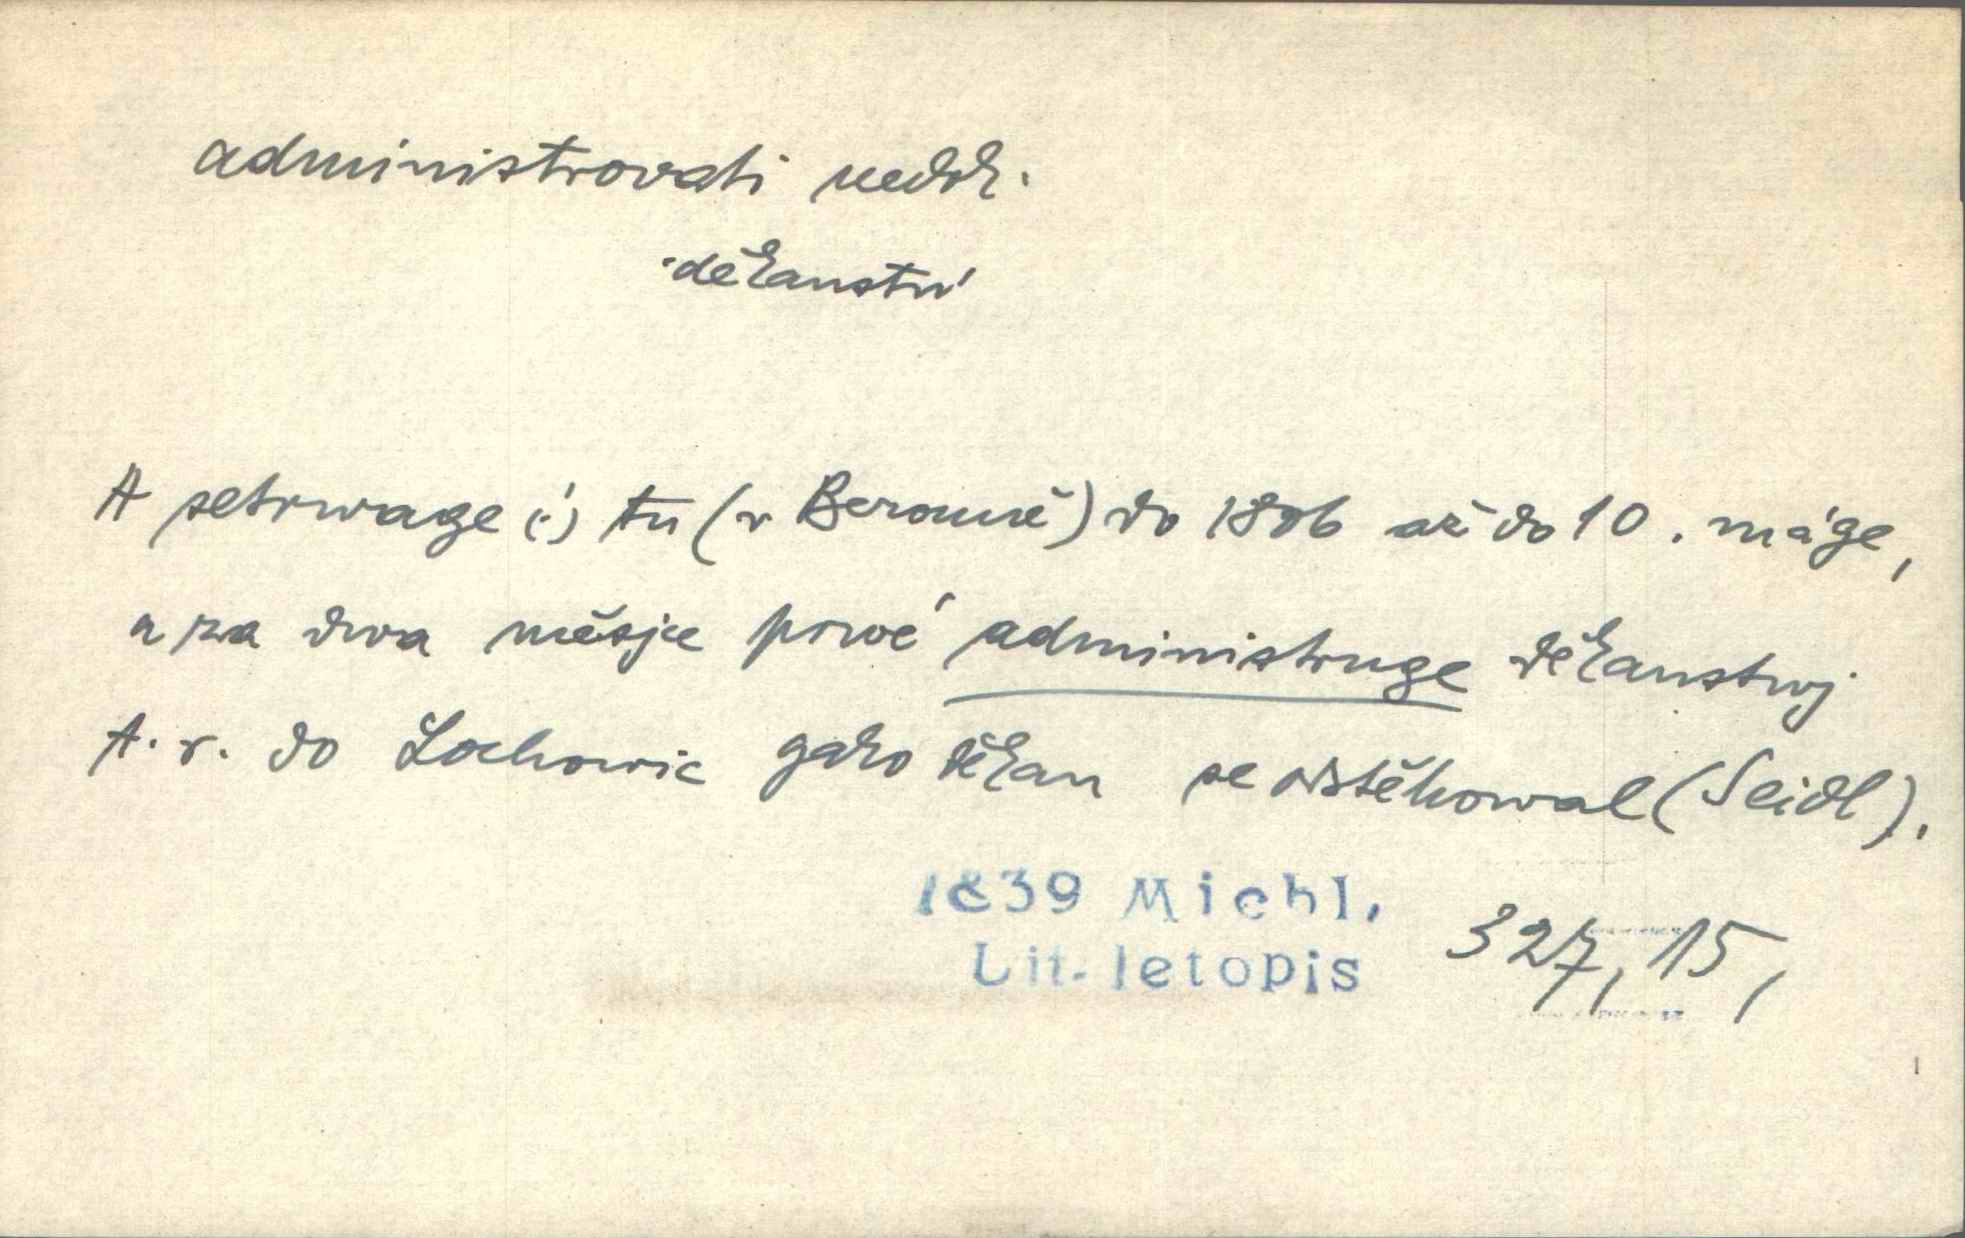 administrovati nedok.
děkanství
A setrwage (!) tu (v Berouně) do 1806 až do 10. máge,
a za dva měsjce prwé administruge děkanstwj
t. r. do Lochowic gako děkan se odstěhowal (Seidl).
1839 Michl.
Lit. letopis 327, 15,